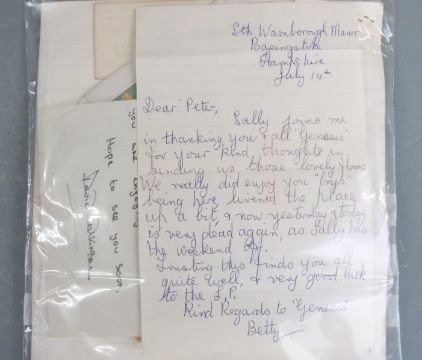 Sth Warnborough Manor
Basingstoke
Hampshire
July 14th
Dear Peter,
Sally joins me
in thanking you & all "Genesis"
for your kind thoughts in
sending us those lovely
We really did enjoy you "boys"
being here, livened the place
up a bit, & now yesterday & today
is very dead again, as Sally has
the weekend off.
Trusting this finds you all
quite well, & very good luck
to the L.P.
Kind Regards to "Genesis"
Betty
you are enjoying
Hope to see you soon,